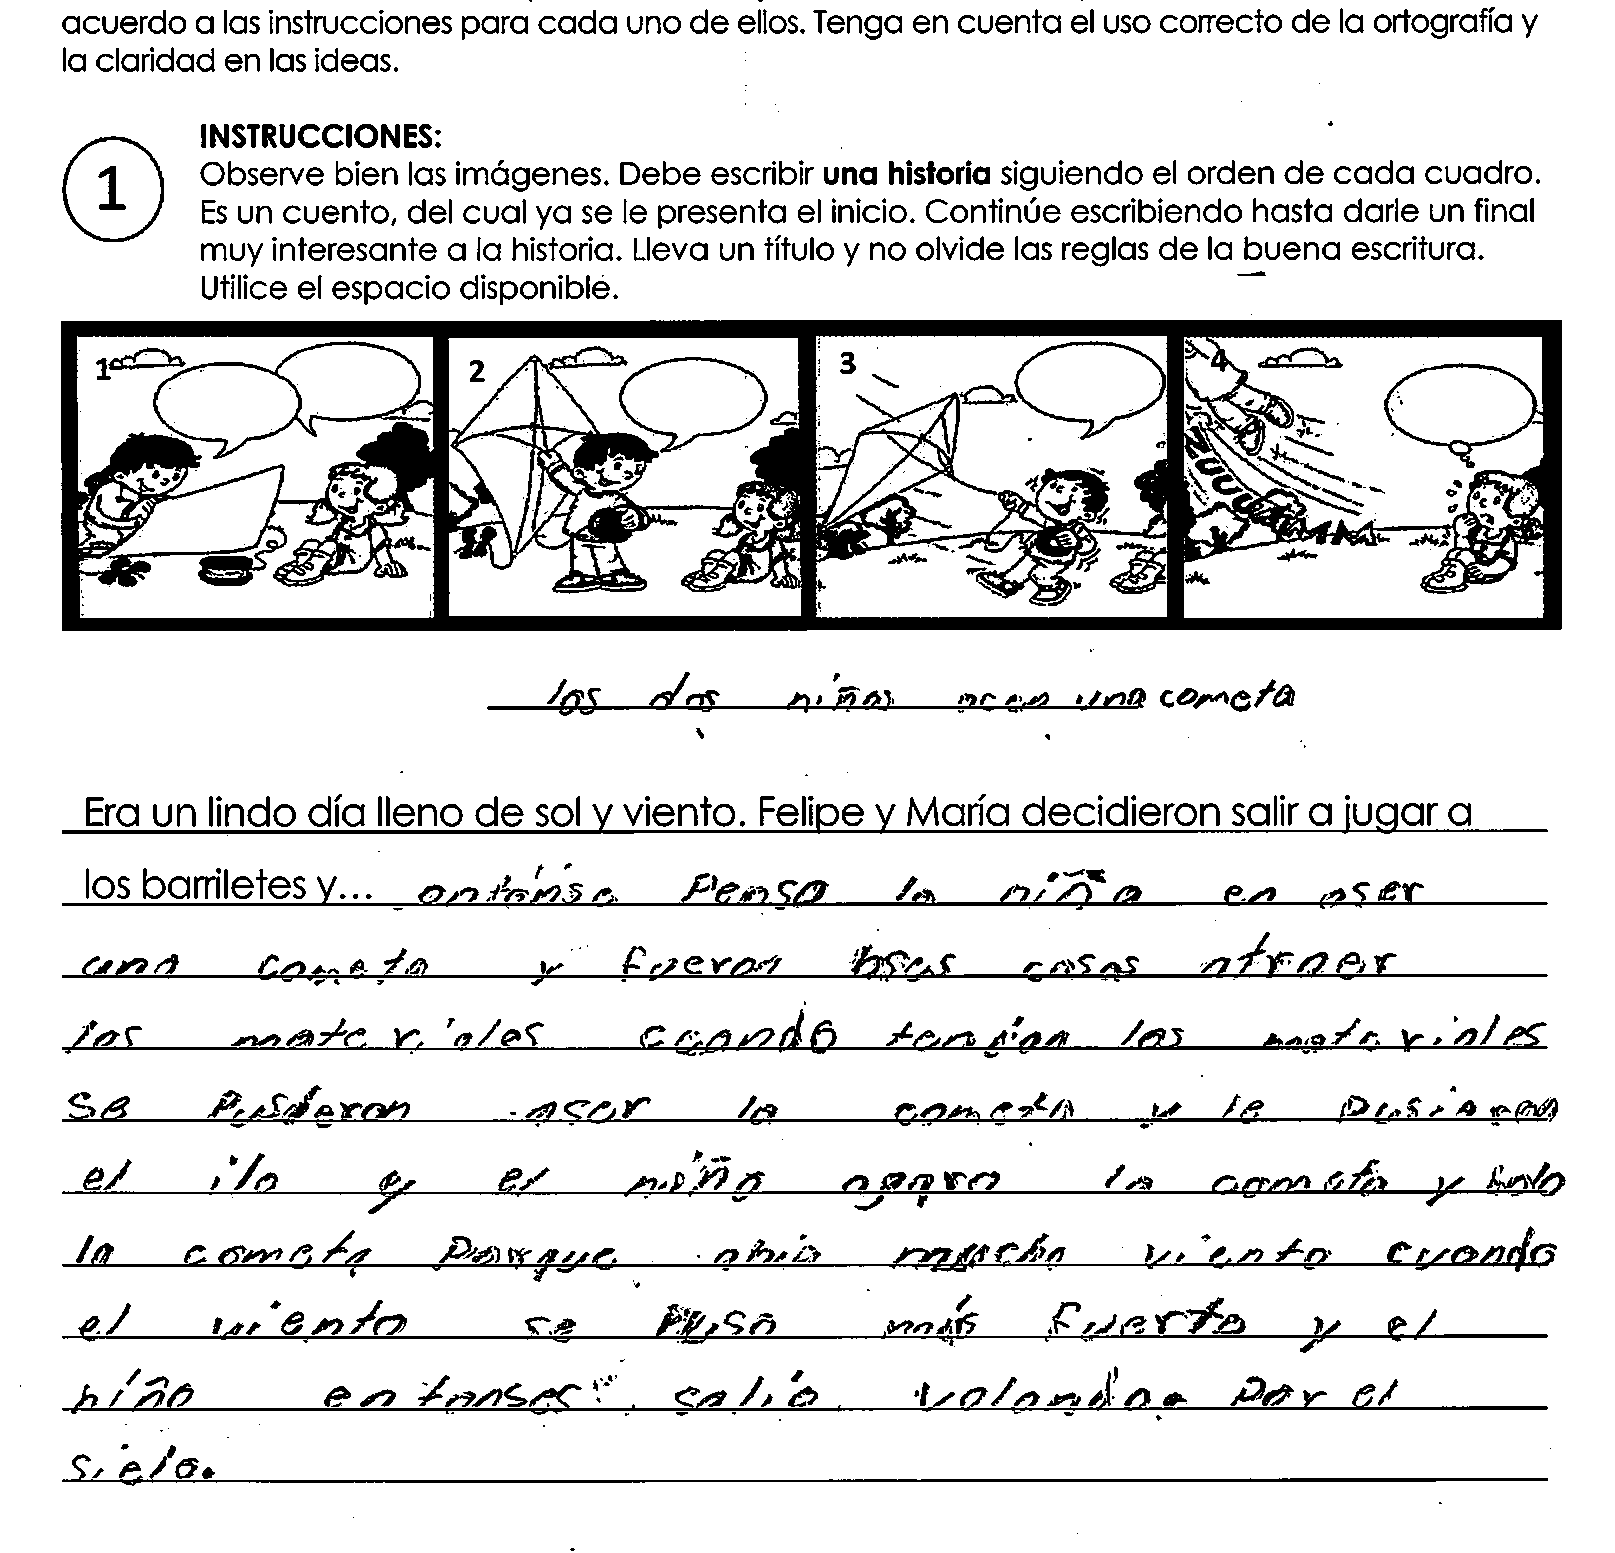 acuerdo a las instrucciones para cada uno de ellos. Tenga en cuenta el uso correcto de la ortografía y
la claridad en las ideas.
1
INSTRUCCIONES:
Observe bien las imágenes. Debe escribir una historia siguiendo el orden de cada cuadro.
Es un cuento, del cual ya se le presenta el inicio. Continúe escribiendo hasta darle un final
muy interesante a la historia. Lleva un título y no olvide las reglas de la buena escritura.
Utilice el espacio disponible.
1 2 3 4
los dos niños acen una cometa
Era un lindo día lleno de sol y viento. Felipe y María decidieron salir a jugar a
los barriletes y... penso la niña en aser
una cometa y fueron casas atraer
los materiales cuando tenian los materiales
se aser la cometa y le pusieron
el ilo y el niño agarro la cometa y
la cometa porque abia mucho viento cuando
el viento se puso más fuerte y el
niño entonses salio volando por el
sielo.